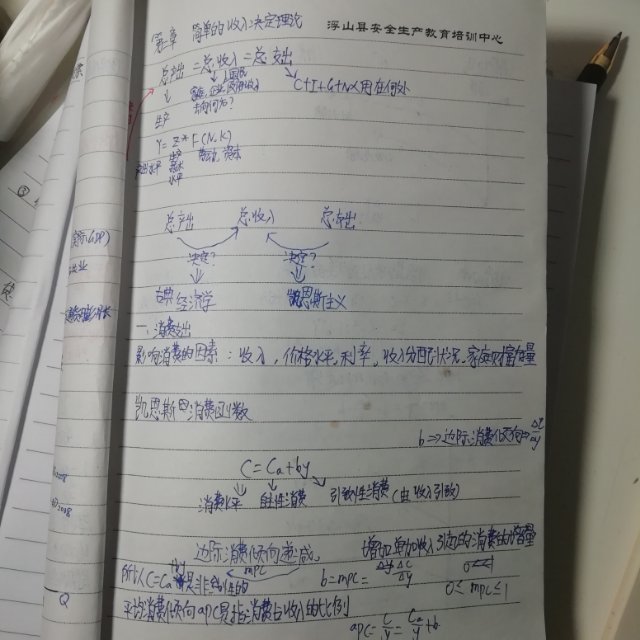 浮山县安全生产教育培训中心
第二章 简单的收入决定理论
总产出 = 总收入 = 总支出
C+I+G+NX 用在何处
去向何方?
生产
Y = Z*F(N,K)
产出水平 生产 技术 水平 劳动 资本
总产出 总收入 总支出
决定? 决定?
古典经济学 凯恩斯主义
一、消费支出
影响消费的因素:收入,价格水平,利率,收入分配状况,家庭财富存量
凯恩斯消费函数
b⇒边际消费倾向=ΔC/Δy
C=Ca+by
消费水平 自主性消费 引致性消费(由收入引致)
边际消费倾向递减. 增加单位收入引起的消费的增量
MPC
所以C=Ca+by是非线性的 b=mpc=ΔC/Δy
0≤mpc≤1
平均消费倾向apc是指消费占收入的比例
apc=C/Y=Ca/Y+b
(实际GDP)
失业
通货膨胀
2008
Q